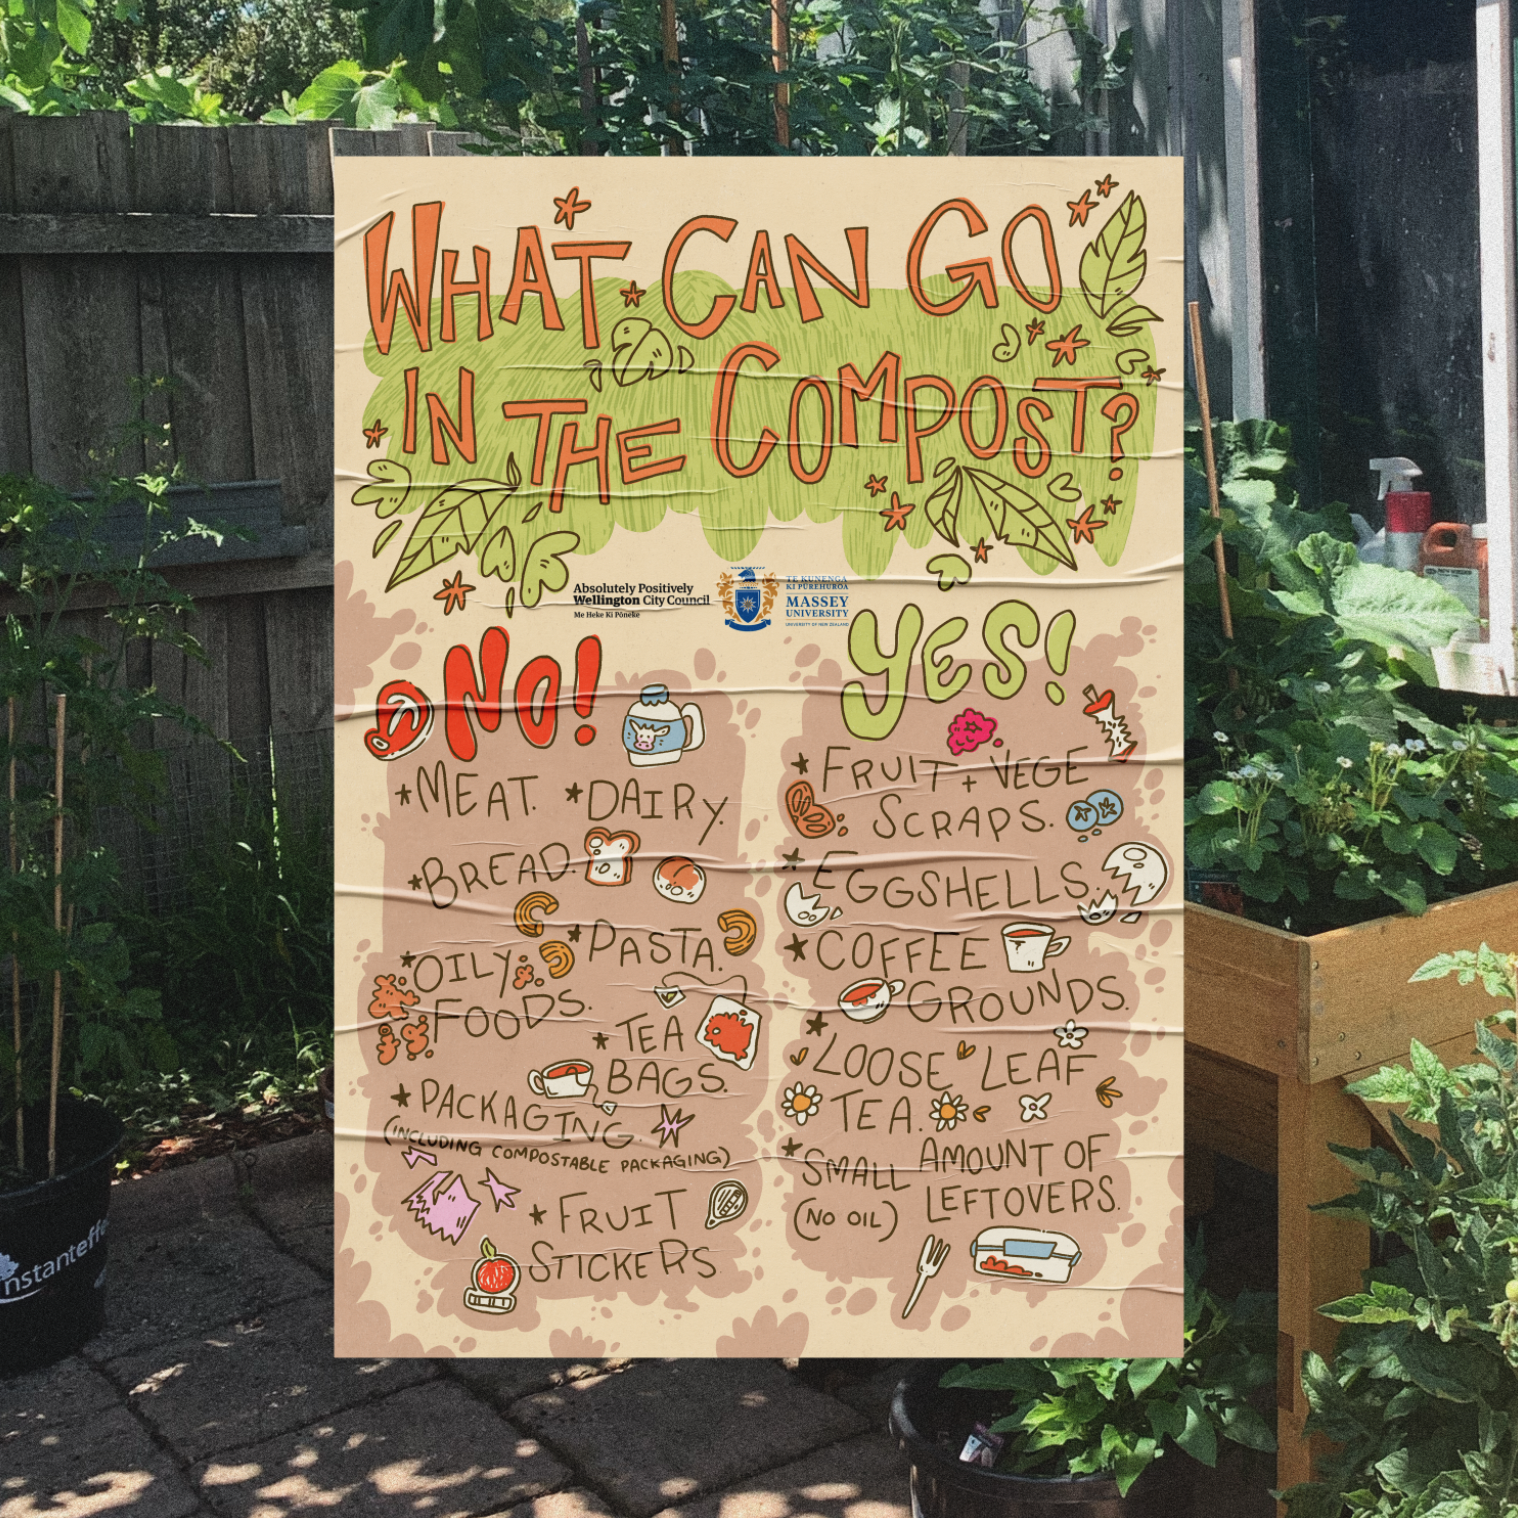 WHAT CAN GO
IN THE COMPOST?
Absolutely Positively
Wellington City Council
Me Heke Ki Pōneke
TE KUNENGA
KI PŪREHUROA
MASSEY
UNIVERSITY
UNIVERSITY OF NEW ZEALAND
NO!
*MEAT. *DAIRY.
*BREAD.
*PASTA.
*OILY
FOODS.
*TEA
BAGS.
*PACKAGING.
(INCLUDING COMPOSTABLE PACKAGING)
*FRUIT
STICKERS
YES!
*FRUIT + VEGE
SCRAPS.
*EGGSHELLS.
*COFFEE
GROUNDS.
*LOOSE LEAF
TEA.
*SMALL AMOUNT OF
LEFTOVERS.
(NO OIL)